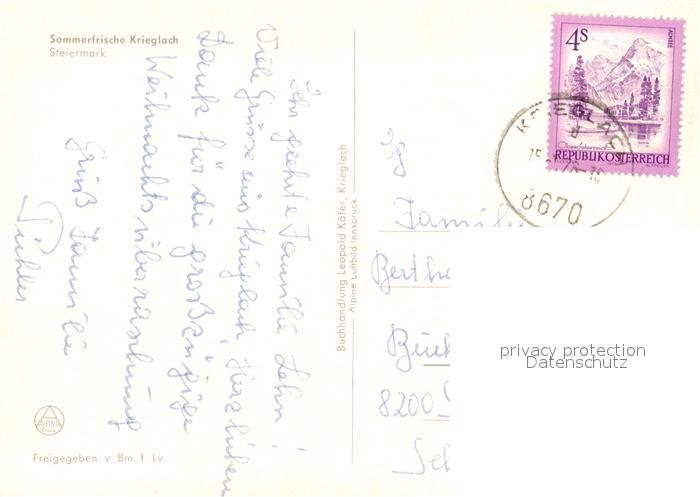 Sommerfrische Krieglach
Steiermark
Sehr geehrte Familie Lehn!
Viele Grüsse aus Krieglach, Herzlichen
Dank für die großzügige
Weihnachtsüberraschung
Grüß Familie
Pichler
ALPINE
Freigegeben v. Bm. f. Lv.
Buchhandlung Leopold Käfer, Krieglach
Alpine Luftbild Innsbruck
4S
ALMSEE
Oberösterreich
REPUBLIK ÖSTERREICH
KRIEGLACH
8670
Familie
Berthe
8200
privacy protection
Datenschutz